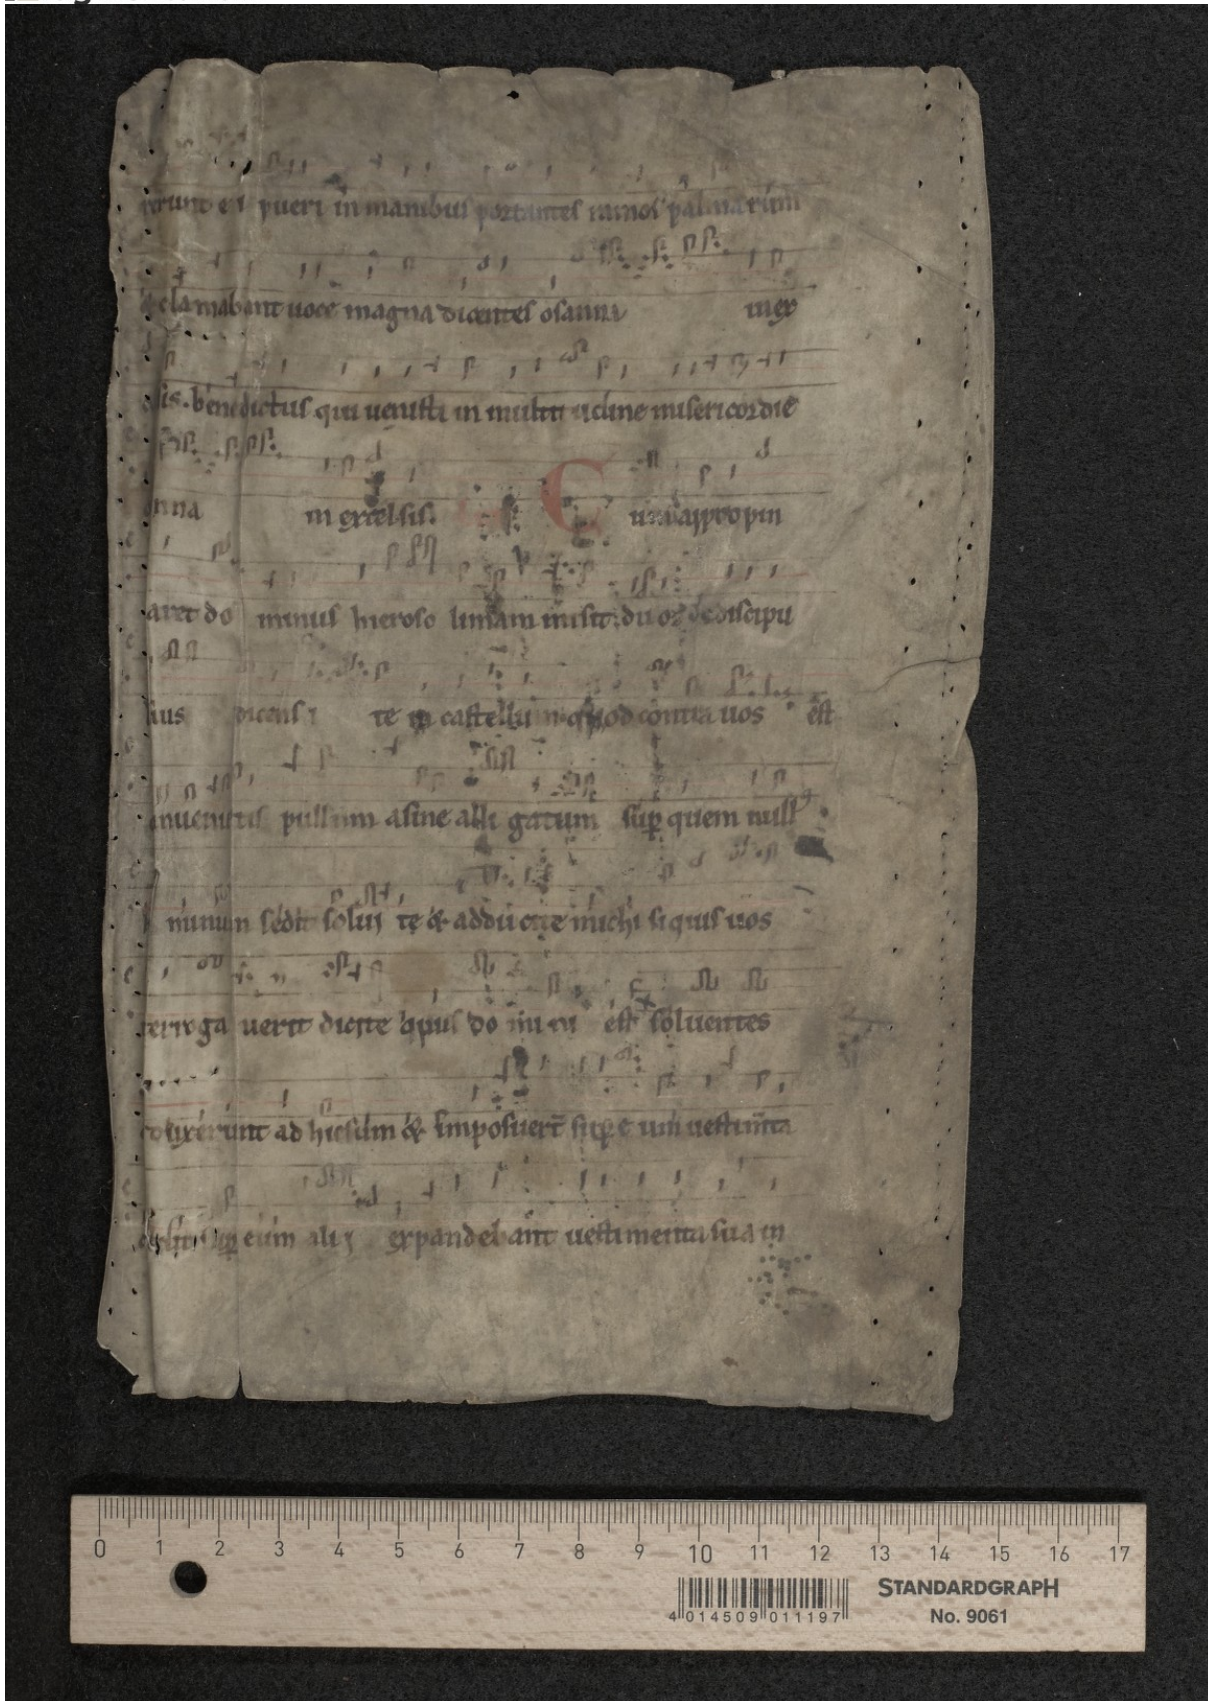 erunt ei pueri in manibus portantes ramos palmarum
& clamabant uoce magna dicentes osanna in ex
sis. benedictus qui uenisti in multitudine misericordie
nna in excelsis. C um appropin
aret do minus hieroso limam misit duos de discipu
lius dicens i te in castellum quod contra uos est
inuenietis pullum asine alli gatum sup quem null
minum sedit solui te & adducite michi si quis uos
terroga uerit dicite opus do mi ni est soluentes
duxerunt ad hiesum & imposuert sup e um uestimta
sup eum alij expandebant uestimenta sua in
0 1 2 3 4 5 6 7 8 9 10 11 12 13 14 15 16 17
STANDARDGRAPH
4 014509 011197
No. 9061